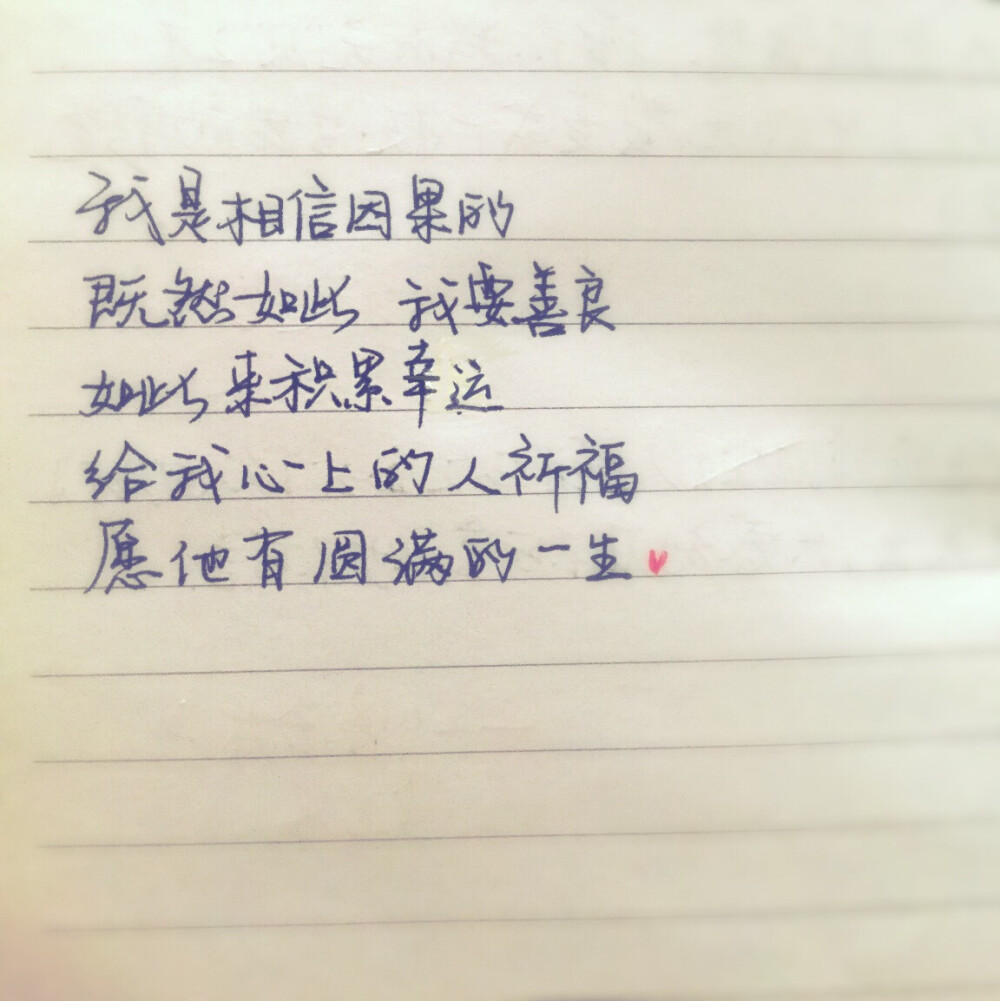 我是相信因果的
既然如此 我要善良
如此来积累幸运
给我心上的人祈福
愿他有圆满的一生